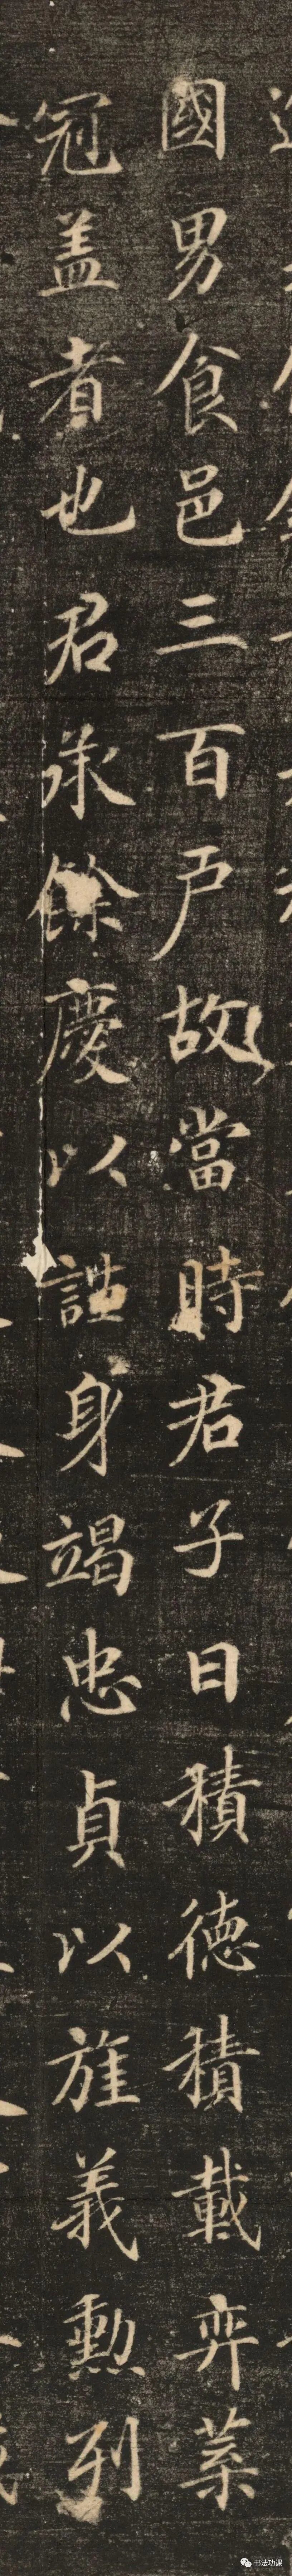 國男食邑三百戶故當時君子曰積德積載弈葉
冠盖者也君承餘慶以詰身竭忠貞以旌義勲列
书法功课